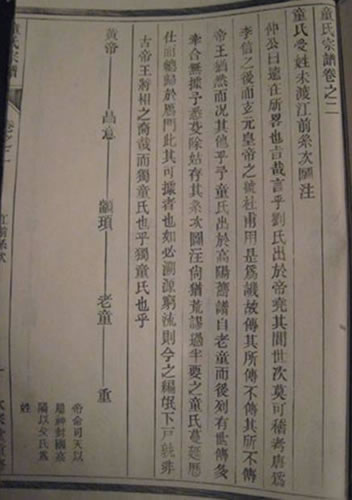 童氏宗譜卷之二
童氏受姓未渡江前系次圖注
仲公曰遠在所畧也吉哉言乎劉氏出於帝堯其間世次莫可稽考唐爲
李信之後而玄元皇帝之號杜甫用是爲譏故傳其所傳不傳其所不傳
帝王猶然而况其他乎予童氏出於高陽舊譜自老童而後列有世傳多
牽合無據予悉芟除姑存其系次圖注尚猶荒謬過半要之童氏蔓延歷
仕而總歸於鴈門此其可據者也如必溯源窮流則今之編氓下戸孰非
古帝王將相之裔哉而獨童氏也乎獨童氏也乎
黃帝 昌意 顓頊 老童 重
帝命司天以
屬神封國高
陽以父氏爲
姓
童氏宗譜
卷之二
江前系次
一